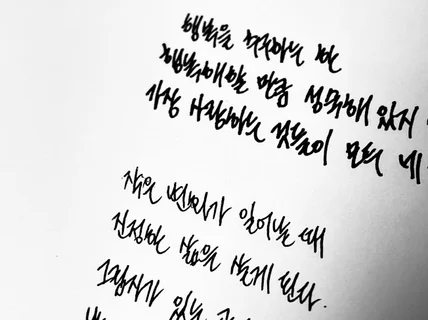 행복을 추구하는 한
행복해질 만큼 성숙해 있지
가장 사랑하는 것들이 모두 네
작은 변화가 일어날 때
진정한 삶을 살게 된다.
그림자가 있는